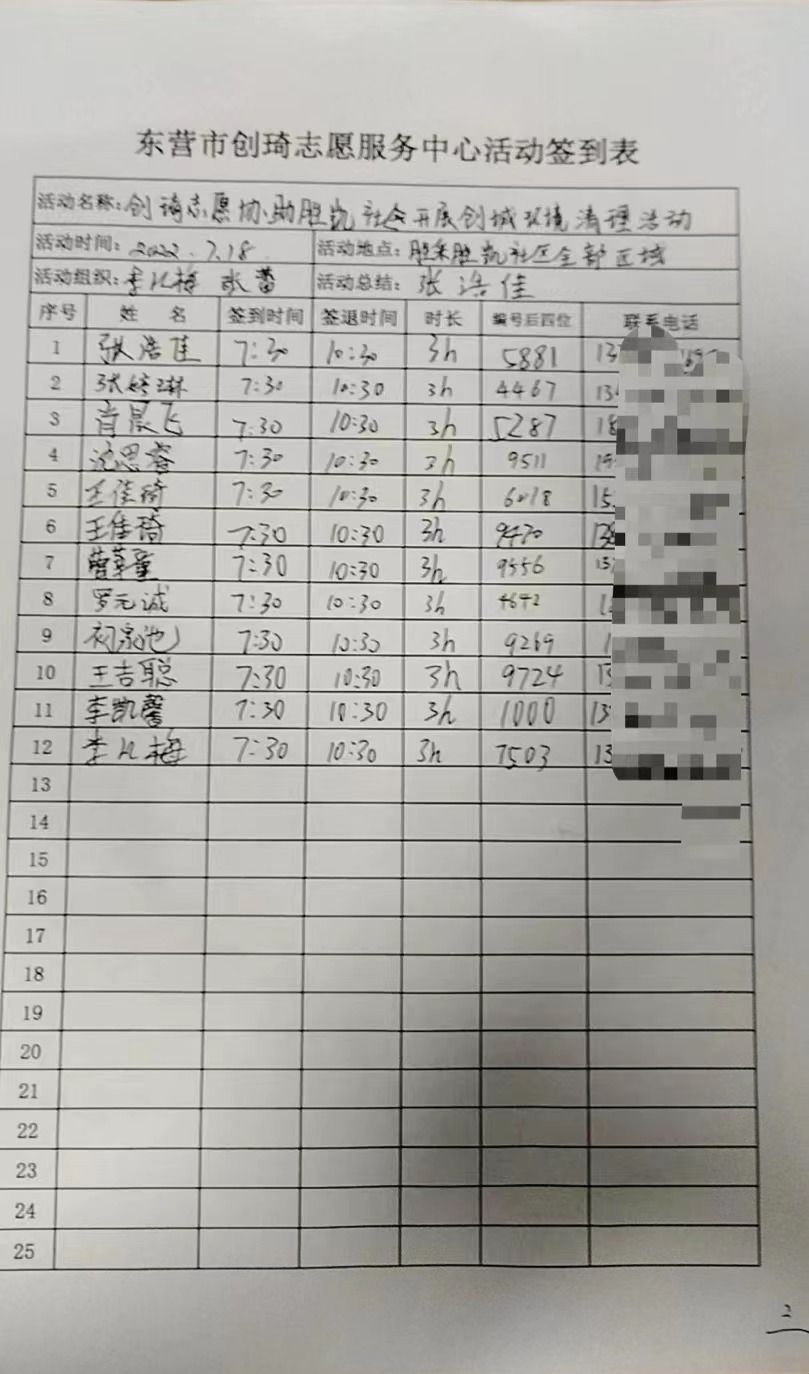 东营市创琦志愿服务中心活动签到表
活动名称:创琦志愿协助胜凯社会开展创城环境清理活动
活动时间:2022.7.18 活动地点:胜采胜凯社区全部区域
活动组织:李化梅 张蕾 活动总结:张浩佳
序号 姓 名 签到时间 签退时间 时长 编号后四位 联系电话
1 张浩佳 7:30 10:30 3h 5881 13
2 张婷琳 7:30 10:30 3h 4467 13
3 肖晨飞 7:30 10:30 3h 5287 18
4 沈思睿 7:30 10:30 3h 9511
5 王佳琦 7:30 10:30 3h 6018 15
6 王佳琦 7:30 10:30 3h 9430 13
7 7:30 10:30 3h 9556 13
8 罗元诚 7:30 10:30 3h 4642 1
9 初家池 7:30 10:30 3h 9269 1
10 王吉聪 7:30 10:30 3h 9724 13
11 李凯馨 7:30 10:30 3h 1000 13
12 李化梅 7:30 10:30 3h 7503 13
13
14
15
16
17
18
19
20
21
22
23
24
25
2